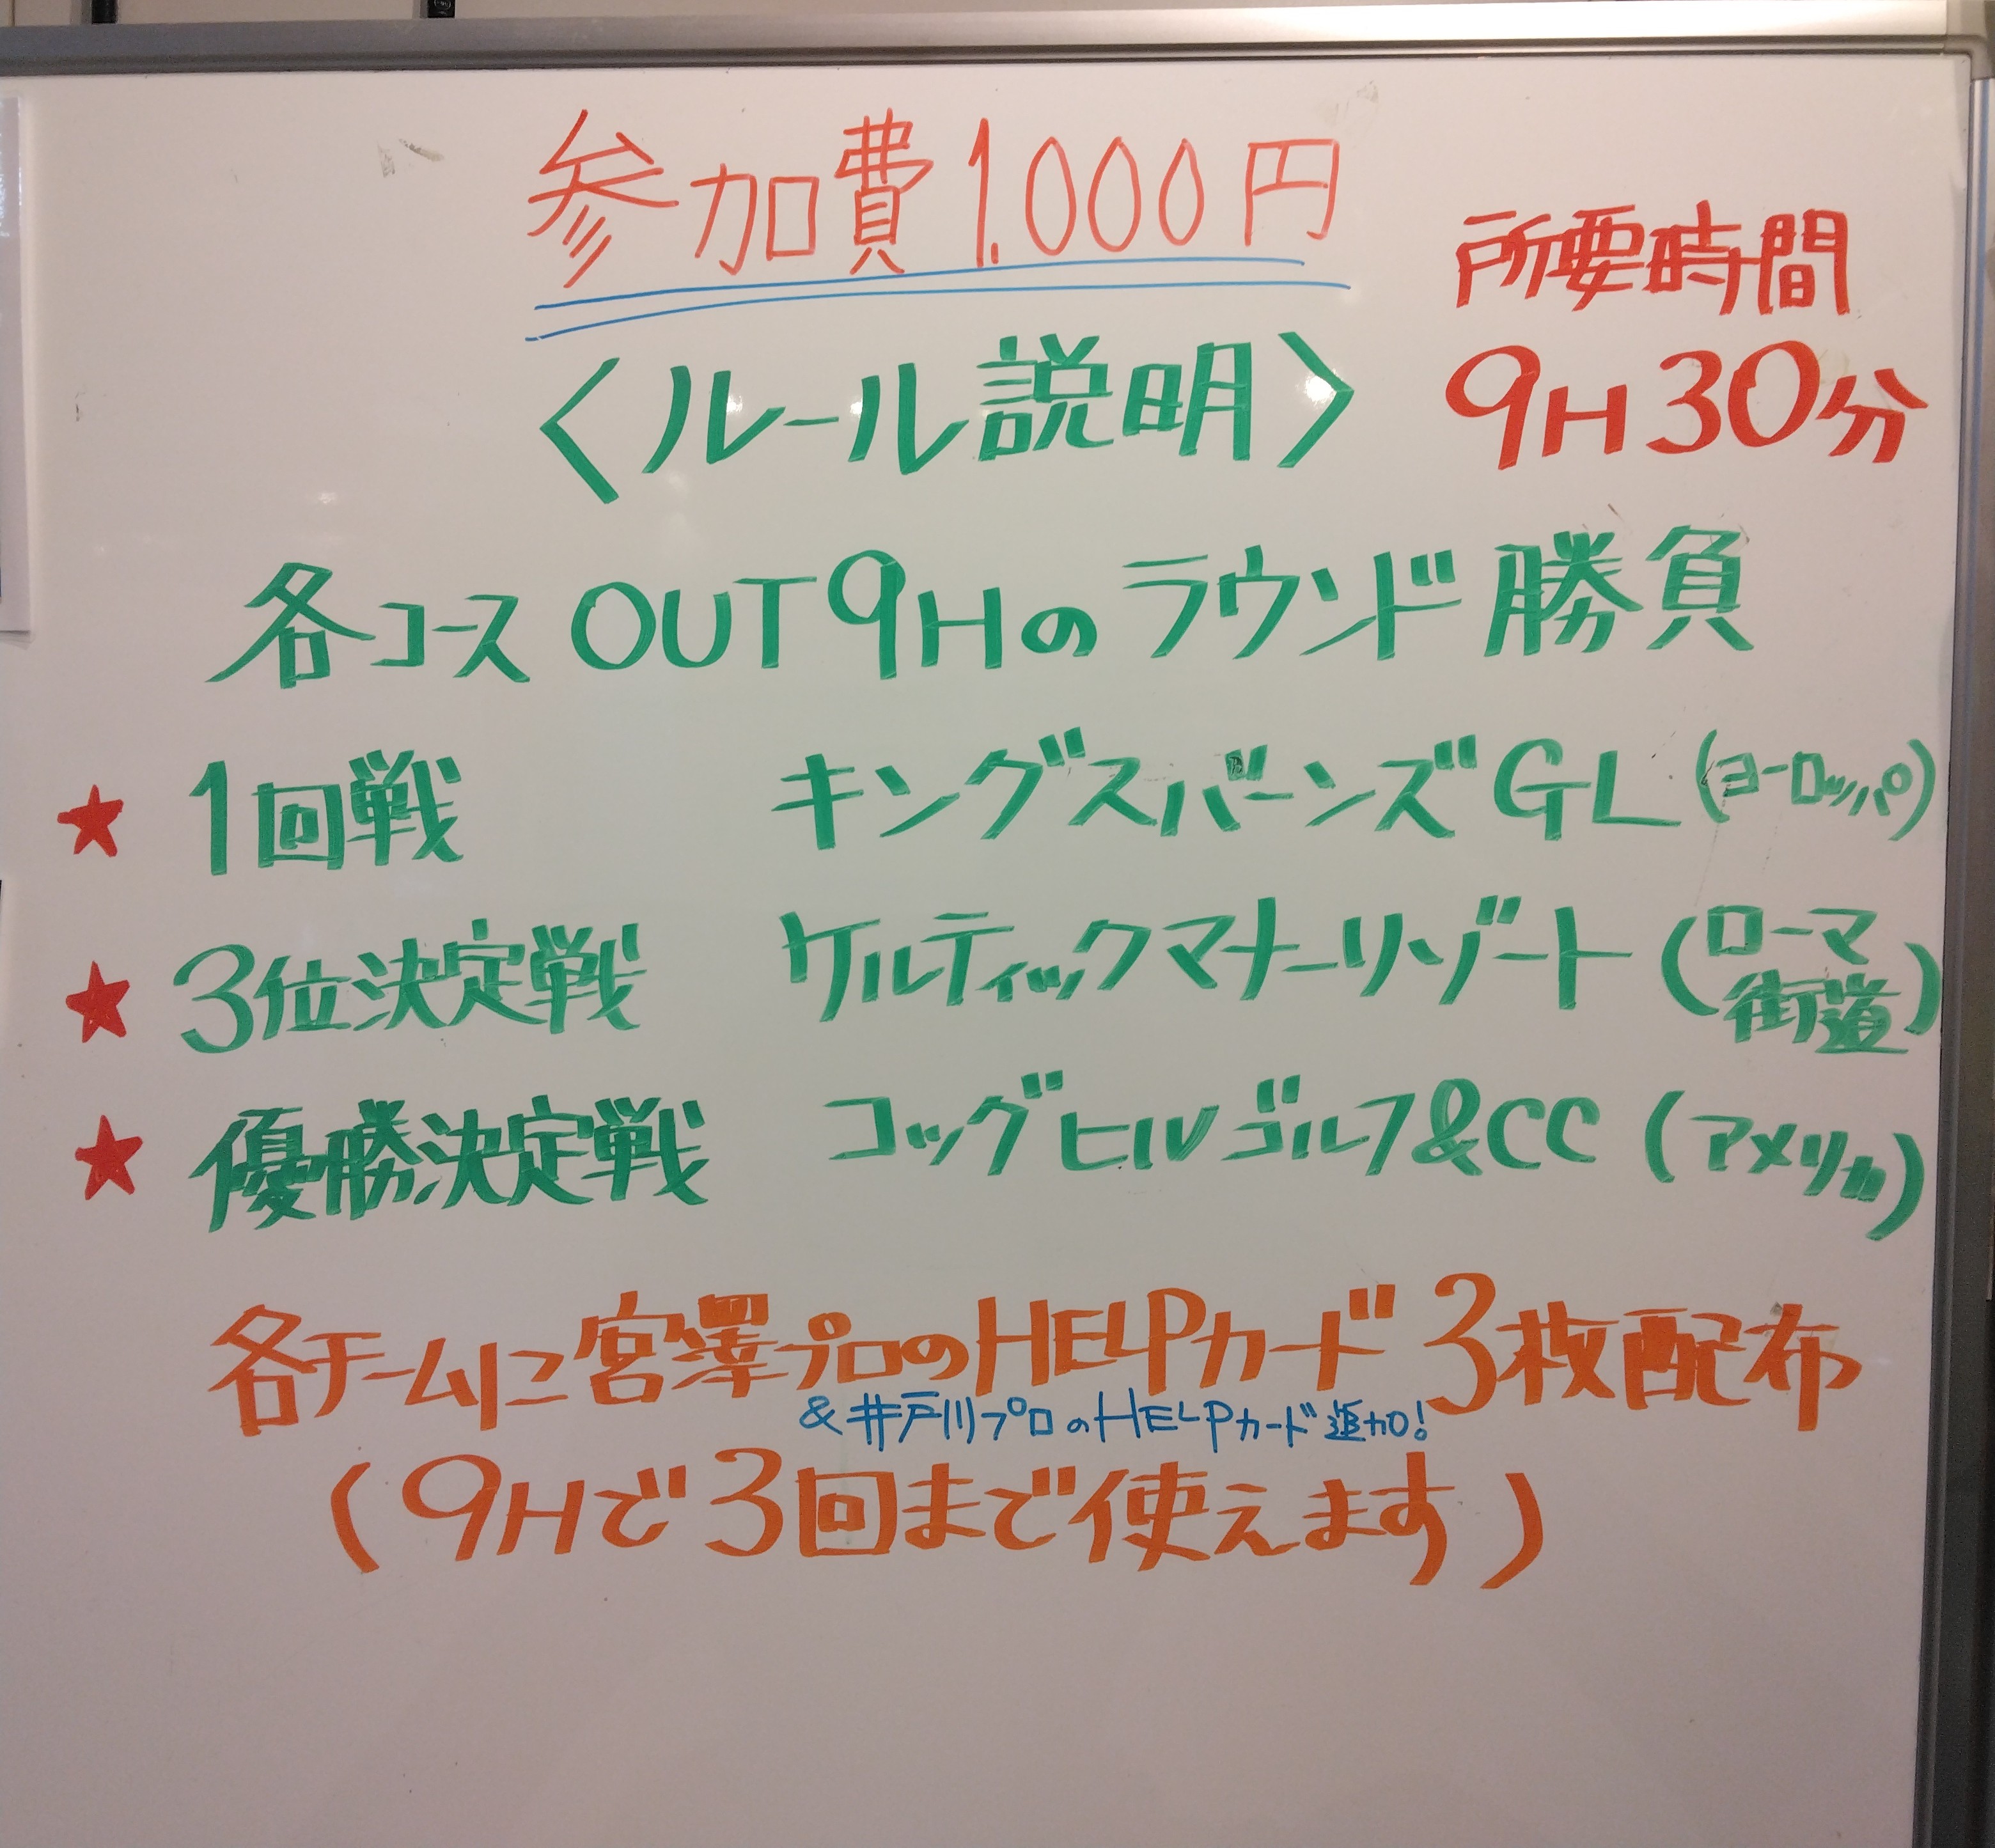 参加費1.000円
所要時間
9H30分
〈ルール説明〉
各コースOUT9Hのラウンド勝負
★ 1回戦 キングスバーンズGL(ヨーロッパ)
★ 3位決定戦 ケルティックマナーリゾート(ローマ街道)
★ 優勝決定戦 コッグヒルゴルフ&CC(アメリカ)
各チームに宮澤プロのHELPカード3枚配布
&井戸川プロのHELPカード追加!
(9Hで3回まで使えます)